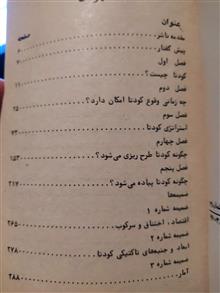 عنوان
صفحه
مقدمه ناشر
پیش گفتار ۶
فصل اول
کودتا چیست؟ ۱۱
فصل دوم
چه زمانی وقوع کودتا امکان دارد؟ ۲۵
فصل سوم
استراتژی کودتا ۷۳
فصل چهارم
چگونه کودتا طرح ریزی می‌شود؟ ۱۵۳
فصل پنجم
چگونه کودتا پیاده می‌شود؟ ۲۱۷
ضمیمه‌ها
ضمیمه شماره ۱
اقتصاد، اختناق و سرکوب ۲۶۵
ضمیمه شماره ۲
ابعاد و جنبه‌های تاکتیکی کودتا ۲۷۸
ضمیمه شماره ۳
آمار ۲۸۸